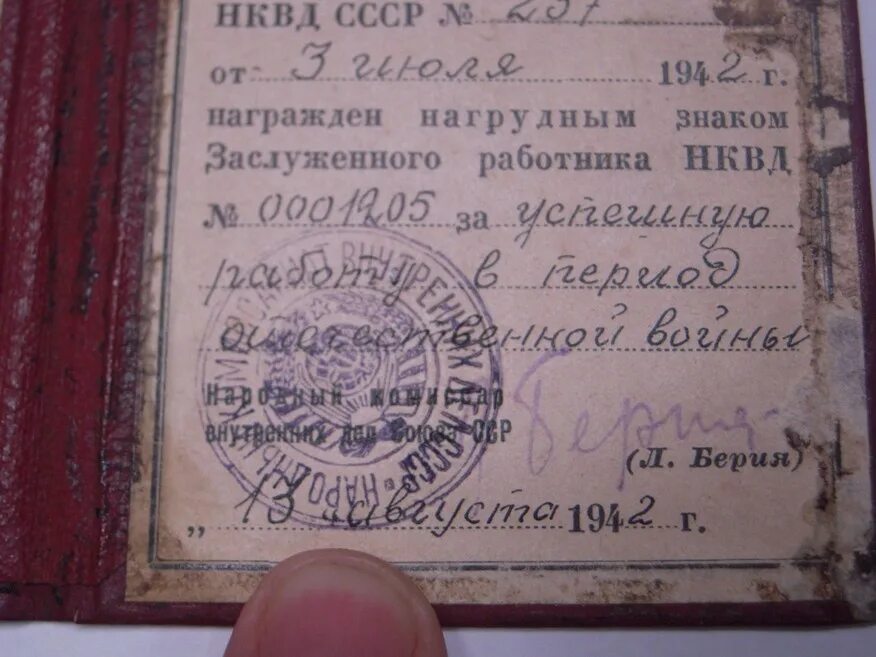 НКВД СССР № 237
от 3 июля 1942 г.
награжден нагрудным знаком
Заслуженного работника НКВД
№ 0001205 за успешную
работу в период
отечественной войны
Народный комиссар
внутренних дел Союза ССР
Берия
(Л. Берия)
„ 13 августа 1942 г.
НАРОДНЫЙ КОМИССАРИАТ ВНУТРЕННИХ ДЕЛ СССР